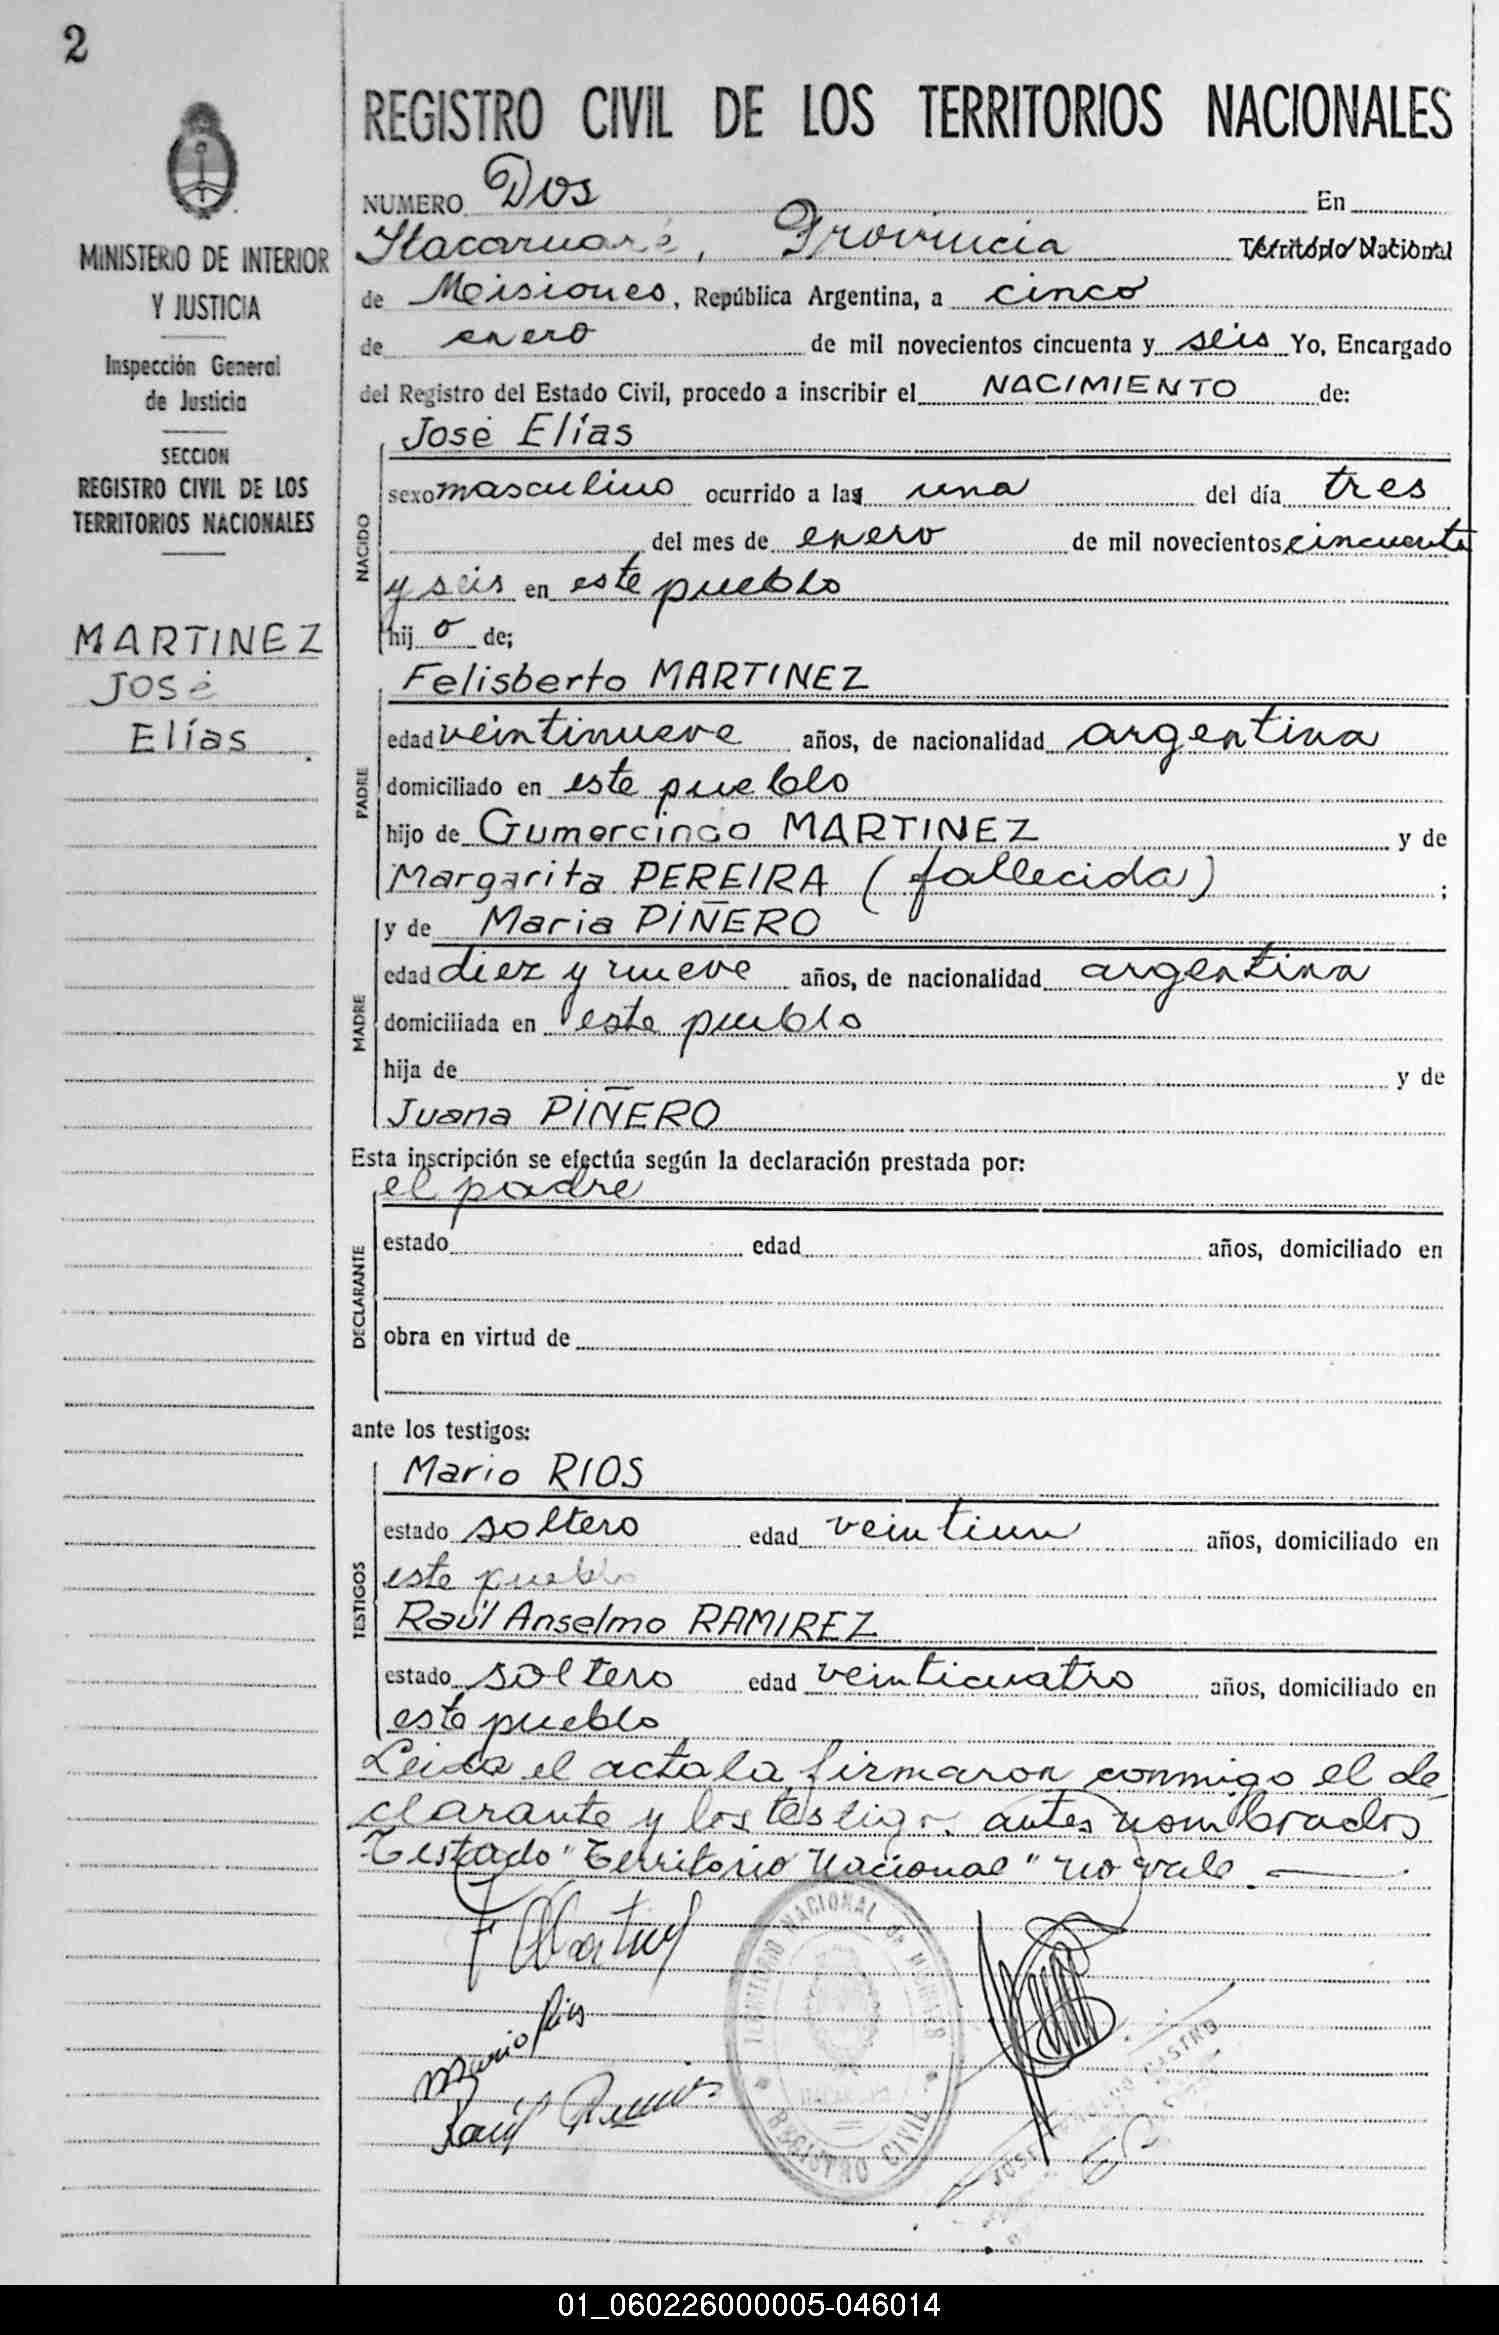 2
MINISTERIO DE INTERIOR
Y JUSTICIA
Inspección General
de Justicia
SECCION
REGISTRO CIVIL DE LOS
TERRITORIOS NACIONALES
MARTINEZ
José
Elías
REGISTRO CIVIL DE LOS TERRITORIOS NACIONALES
NUMERO Dos En
Itacaruaré, Provincia Territorio Nacional
de Misiones, República Argentina, a cinco
de enero de mil novecientos cincuenta y seis Yo, Encargado
del Registro del Estado Civil, procedo a inscribir el NACIMIENTO de:
José Elías
NACIDO
sexo masculino ocurrido a las una del día tres
del mes de enero de mil novecientos cincuenta
y seis en este pueblo
hij o de;
Felisberto MARTINEZ
PADRE
edad veintinueve años, de nacionalidad argentina
domiciliado en este pueblo
hijo de Gumercindo MARTINEZ y de
Margarita PEREIRA (fallecida) ;
y de Maria PIÑERO
MADRE
edad diez y nueve años, de nacionalidad argentina
domiciliada en este pueblo
hija de y de
Juana PIÑERO
Esta inscripción se efectúa según la declaración prestada por:
el padre
DECLARANTE
estado edad años, domiciliado en
obra en virtud de
ante los testigos:
Mario RIOS
TESTIGOS
estado soltero edad veintiun años, domiciliado en
este pueblo
Raúl Anselmo RAMIREZ
estado soltero edad veinticuatro años, domiciliado en
este pueblo
Leida el acta la firmaron conmigo el de
clarante y los testigos antes nombrados
Testado "Territorio Nacional" no vale
F Martinez
Mario Rios
Raúl Ramirez
TERRITORIO NACIONAL DE MISIONES
REGISTRO CIVIL
JOSE CASTRO
01_060226000005-046014